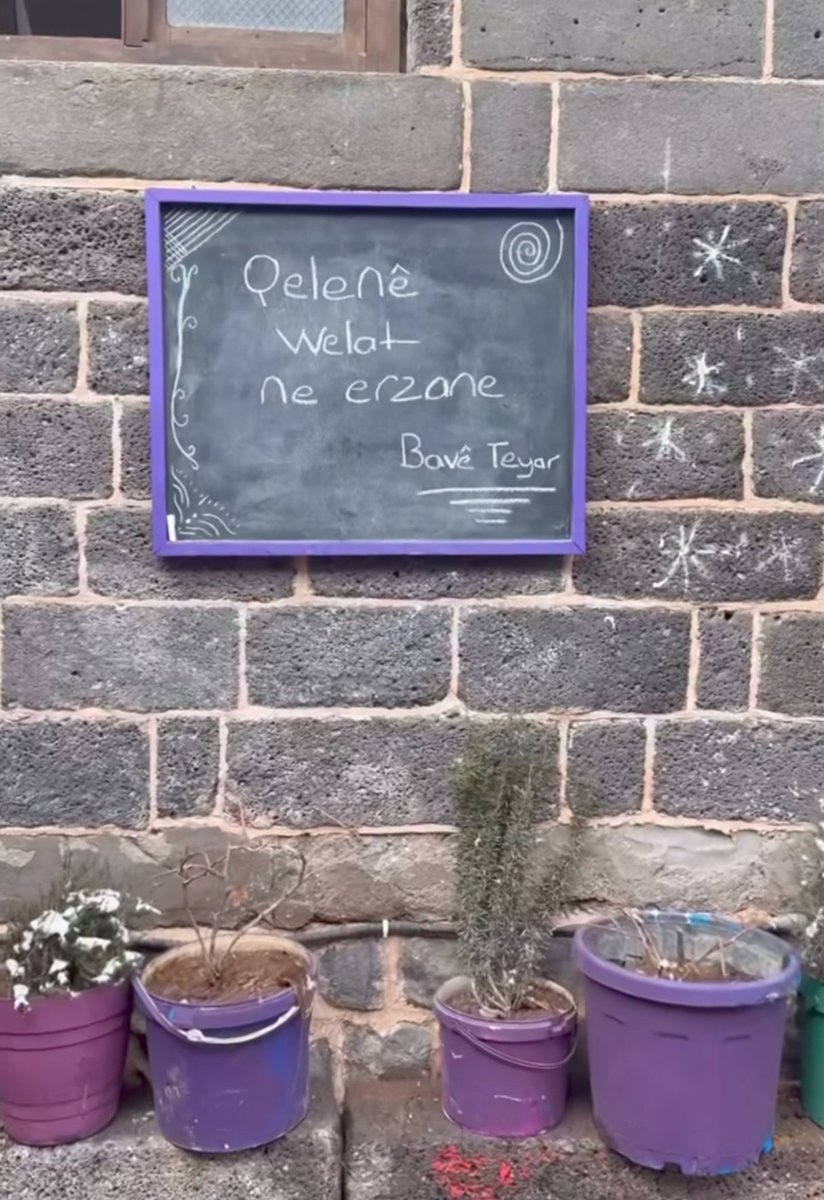 Qelenê
Welat
ne erzane
Bavê Teyar